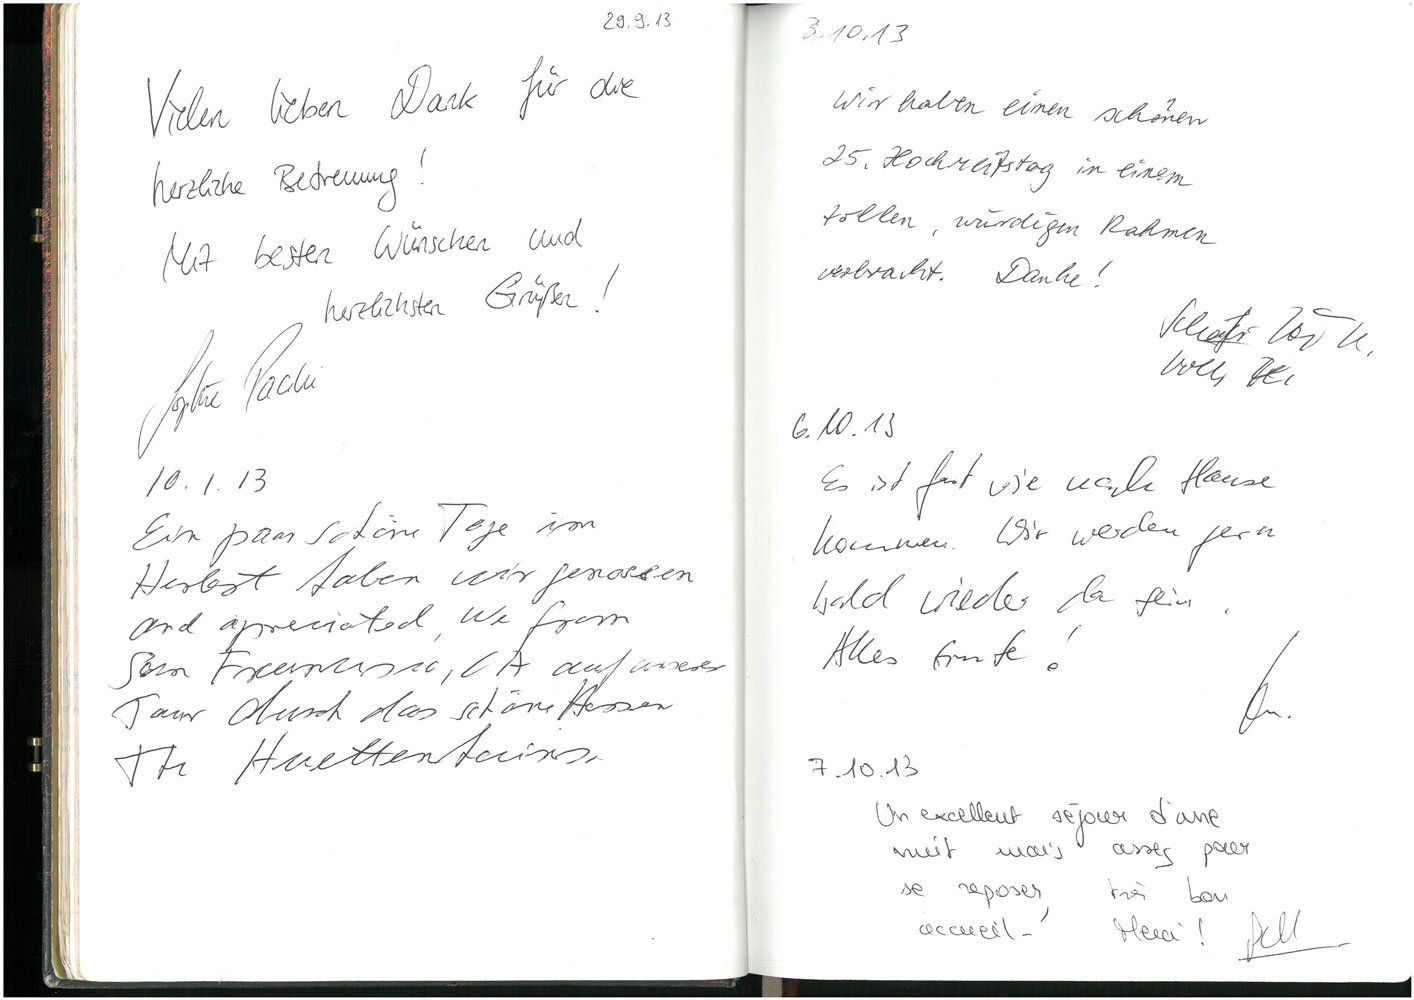 29.9.13
Vielen lieben Dank für die
herzliche Betreuung!
Mit besten Wünschen und
herzlichsten Grüßen!
10.1.13
Ein paar schöne Tage im
Herbst haben wir genossen
and appreciated, we from
San Francisco, CA auf unserer
Tour durch das schöne Hessen
The Huettenhains.
3.10.13
Wir haben einen schönen
25. Hochzeitstag in einem
tollen, würdigen Rahmen
verbracht. Danke!
6.10.13
Es ist fast wie nach Hause
kommen. Wir werden gern
bald wieder da sein.
Alles Gute!
7.10.13
Un excellent séjour d'une
nuit mais assez pour
se reposer, très bon
accueil-! Merci!